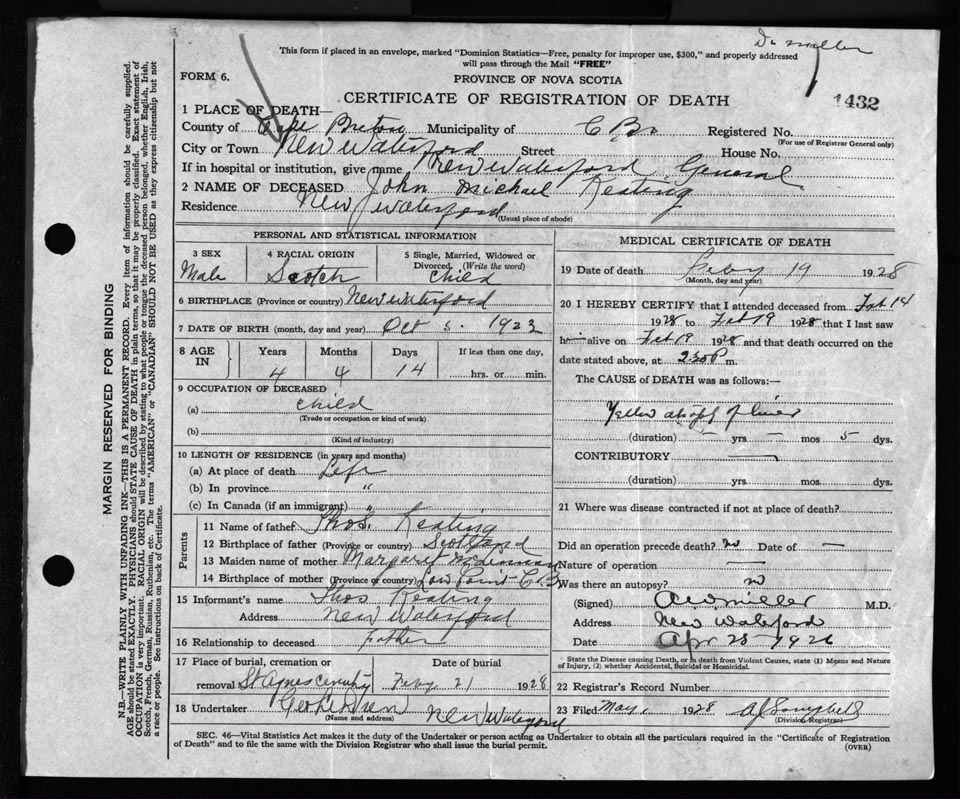 Dr Miller
This form if placed in an envelope, marked "Dominion Statistics—Free, penalty for improper use, $300," and properly addressed
will pass through the Mail "FREE"
FORM 6.
PROVINCE OF NOVA SCOTIA
CERTIFICATE OF REGISTRATION OF DEATH
1432
1 PLACE OF DEATH—
County of Cape Breton Municipality of C B. Registered No.
(For use of Registrar General only)
City or Town New Waterford Street House No.
If in hospital or institution, give name New Waterford General
2 NAME OF DECEASED John Michael Keating
Residence New Waterford
(Usual place of abode)
PERSONAL AND STATISTICAL INFORMATION
3 SEX 4 RACIAL ORIGIN 5 Single, Married, Widowed or Divorced (Write the word)
Male Scotch Child
6 BIRTHPLACE (Province or country) New Waterford
7 DATE OF BIRTH (month, day and year) Oct 5. 1923
8 AGE IN Years Months Days If less than one day,
4 4 14 hrs. or min.
9 OCCUPATION OF DECEASED
(a) child
(Trade or occupation or kind of work)
(b)
(Kind of industry)
10 LENGTH OF RESIDENCE (in years and months)
(a) At place of death Life
(b) In province "
(c) In Canada (if an immigrant) "
Parents
11 Name of father Thos. Keating
12 Birthplace of father (Province or country) Scotland
13 Maiden name of mother Margaret
14 Birthplace of mother (Province or country) Low Point C B
15 Informant's name Thos Keating
Address New Waterford
16 Relationship to deceased Father
17 Place of burial, cremation or removal Date of burial
St Agnes Cemetry Feby 21 1928
18 Undertaker New Waterford
(Name and address)
MEDICAL CERTIFICATE OF DEATH
19 Date of death Feby 19 1928
(Month, day and year)
20 I HEREBY CERTIFY that I attended deceased from Feb 14
1928 to Feb 19 1928 that I last saw
h alive on Feb 19 1928 and that death occurred on
date stated above, at 2:30 P m.
The CAUSE of DEATH was as follows:—
Yellow atrophy of liver
(duration) — yrs. — mos 5 dys.
CONTRIBUTORY
(duration) yrs. mos. dys.
21 Where was disease contracted if not at place of death?
Did an operation precede death? no Date of —
Nature of operation —
Was there an autopsy? no
(Signed) Miller M.D.
Address New Waterford
Date Apr 28-1926
State the Disease causing Death, or in death from Violent Causes, state (1) Means and Nature
of Injury, (2) whether Accidental, Suicidal or Homicidal.
22 Registrar's Record Number
23 Filed May 1928
(Division Registrar)
SEC. 46—Vital Statistics Act makes it the duty of the Undertaker or person acting as Undertaker to obtain all the particulars required in the "Certificate of Registration
of Death" and to file the same with the Division Registrar who shall issue the burial permit.
(OVER)
MARGIN RESERVED FOR BINDING
N.B.—WRITE PLAINLY WITH UNFADING INK—THIS IS A PERMANENT RECORD. Every item of information should be carefully supplied.
AGE should be stated EXACTLY. PHYSICIANS should STATE CAUSE OF DEATH in plain terms, so that it may be properly classified. Exact statement of
OCCUPATION is very important. RACIAL ORIGIN will be described by stating to what people or tongue the deceased person belonged, whether English, Irish,
Scotch, French, German, Russian, Ruthenian, etc. The terms "AMERICAN" or "CANADIAN" SHOULD NOT BE USED as they express citizenship but not
a race or people. See instructions on back of Certificate.